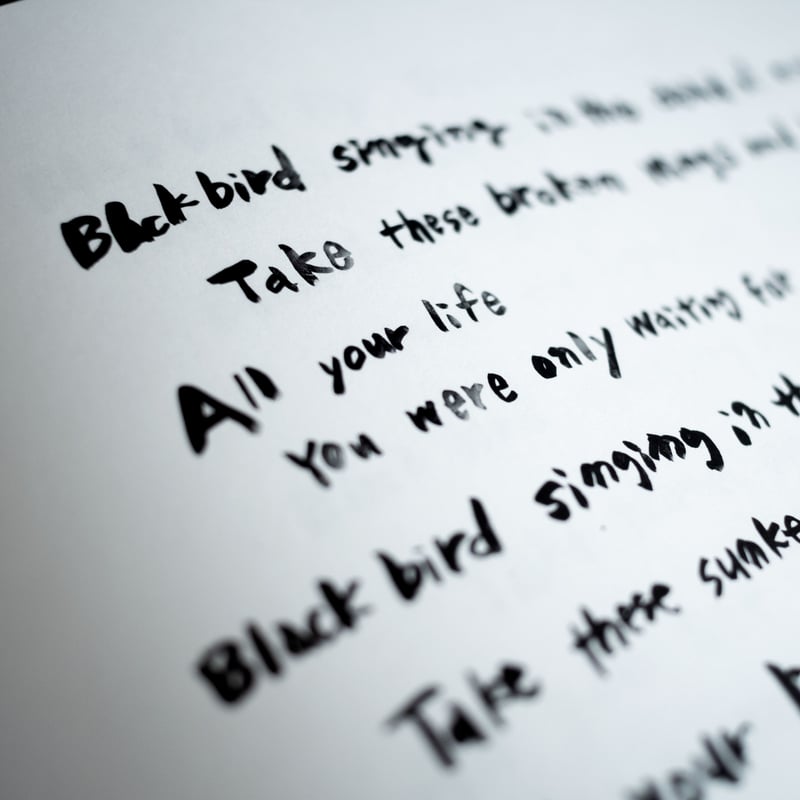 Blackbird singing in the dead of
Take these broken wings and
All your life
You were only waiting for
Blackbird singing in th
Take these sunke
your